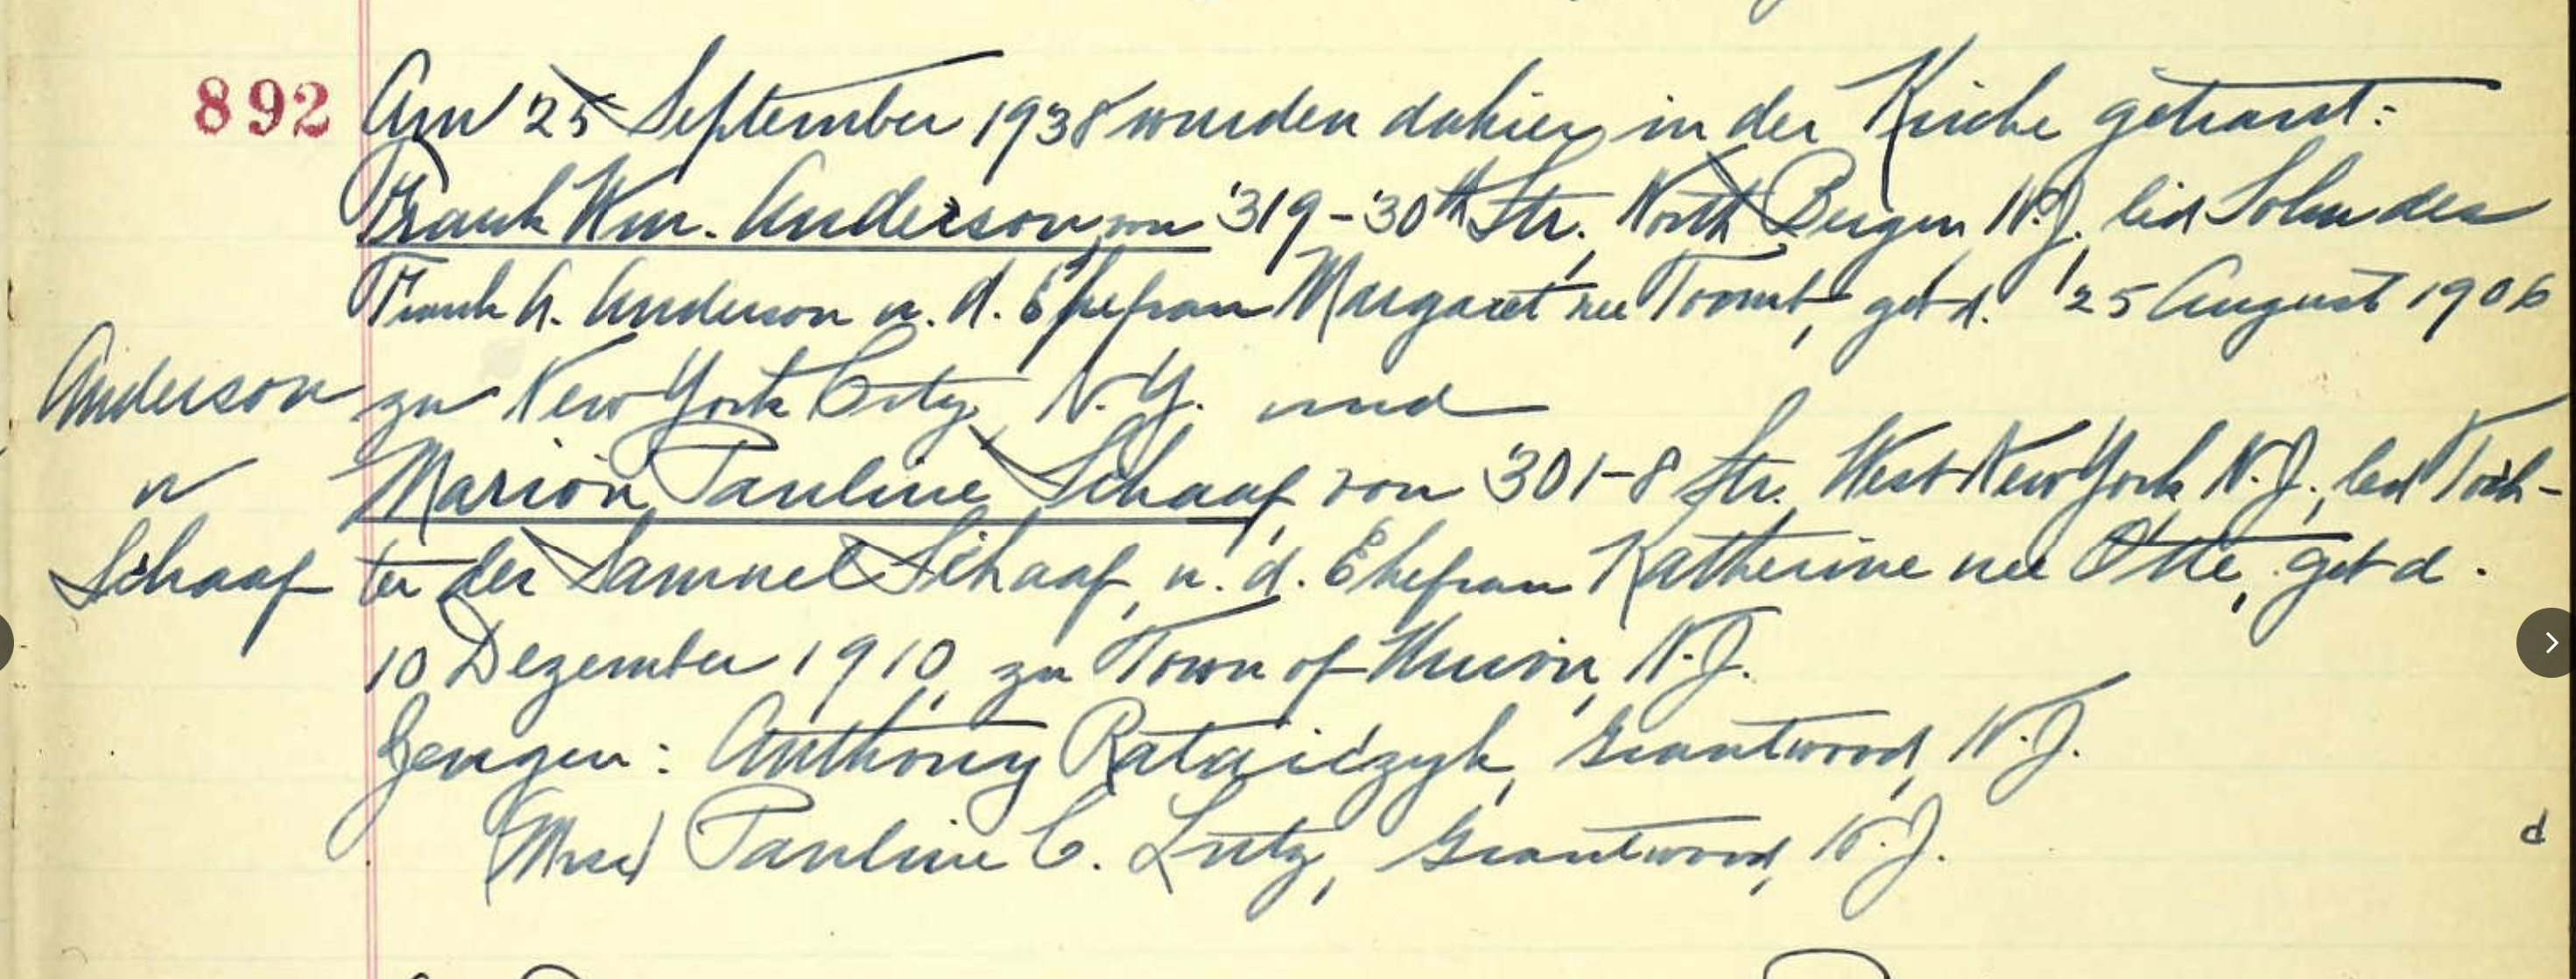 892 Am 25 September 1938 wurden dahier in der Kirche getraut:
Frank Wm. Anderson, von 319-30th Str., North Bergen, N.J. led Sohn des
Frank A. Anderson u. d. Ehefrau Margaret nee geb d. 25 August 1906
Anderson zu New York City, N.Y. und
u Marion Pauline Schaaf, von 301-8 Str. West New York N.J., led Toch-
Schaaf ter des Samuel Schaaf, u. d. Ehefrau Katherine nee Otte, geb d.
10 Dezember 1910, zu Town of Union, N.J.
Zeugen: Anthony Rataiczyk, Grantwood, N.J.
(Mrs) Pauline C. Lutz, Grantwood, N.J.
d